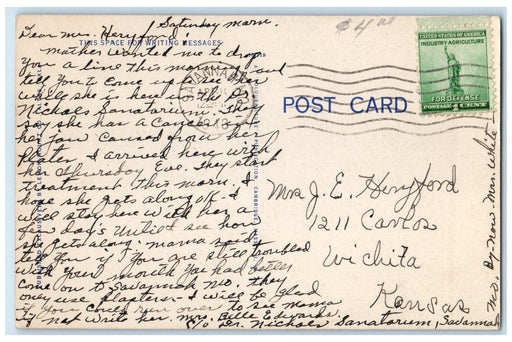 Saturday morn.
$4.00
Dear Mrs. Heryford;
THIS SPACE FOR WRITING MESSAGES
Mother wanted me to drop
you a line this morning and
tell you to come up to see her
while she is here at the Dr
Nichols Sanatorium. They
say she has a Cancer on
her Jaw caused from her
Plate. I arrived here with
her Thursday Eve. They start
treatment this morn. I
hope she gets along o.k. I
will stay here with her a
few day's until I see how
she gets along. Mama said
tell you if you are still troubled
with your mouth you had better
come on to Savannah Mo. they
only use plasters - I will be glad
if you could run over to see mama
if not write her. Mrs. Belle Edwards.
C/o Dr. Nichols Sanatorium, Savannah
Mo. By now. Mrs. White
SAVANNAH
POST CARD
UNITED STATES OF AMERICA
INDUSTRY AGRICULTURE
FOR DEFENSE
1 CENT
Mrs J. E. Heryford
1211 Carlos
Wichita
Kansas